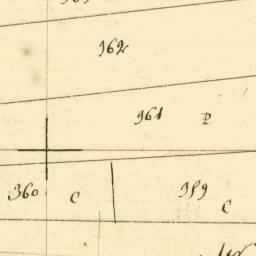 362
361 P
360 C 359 C